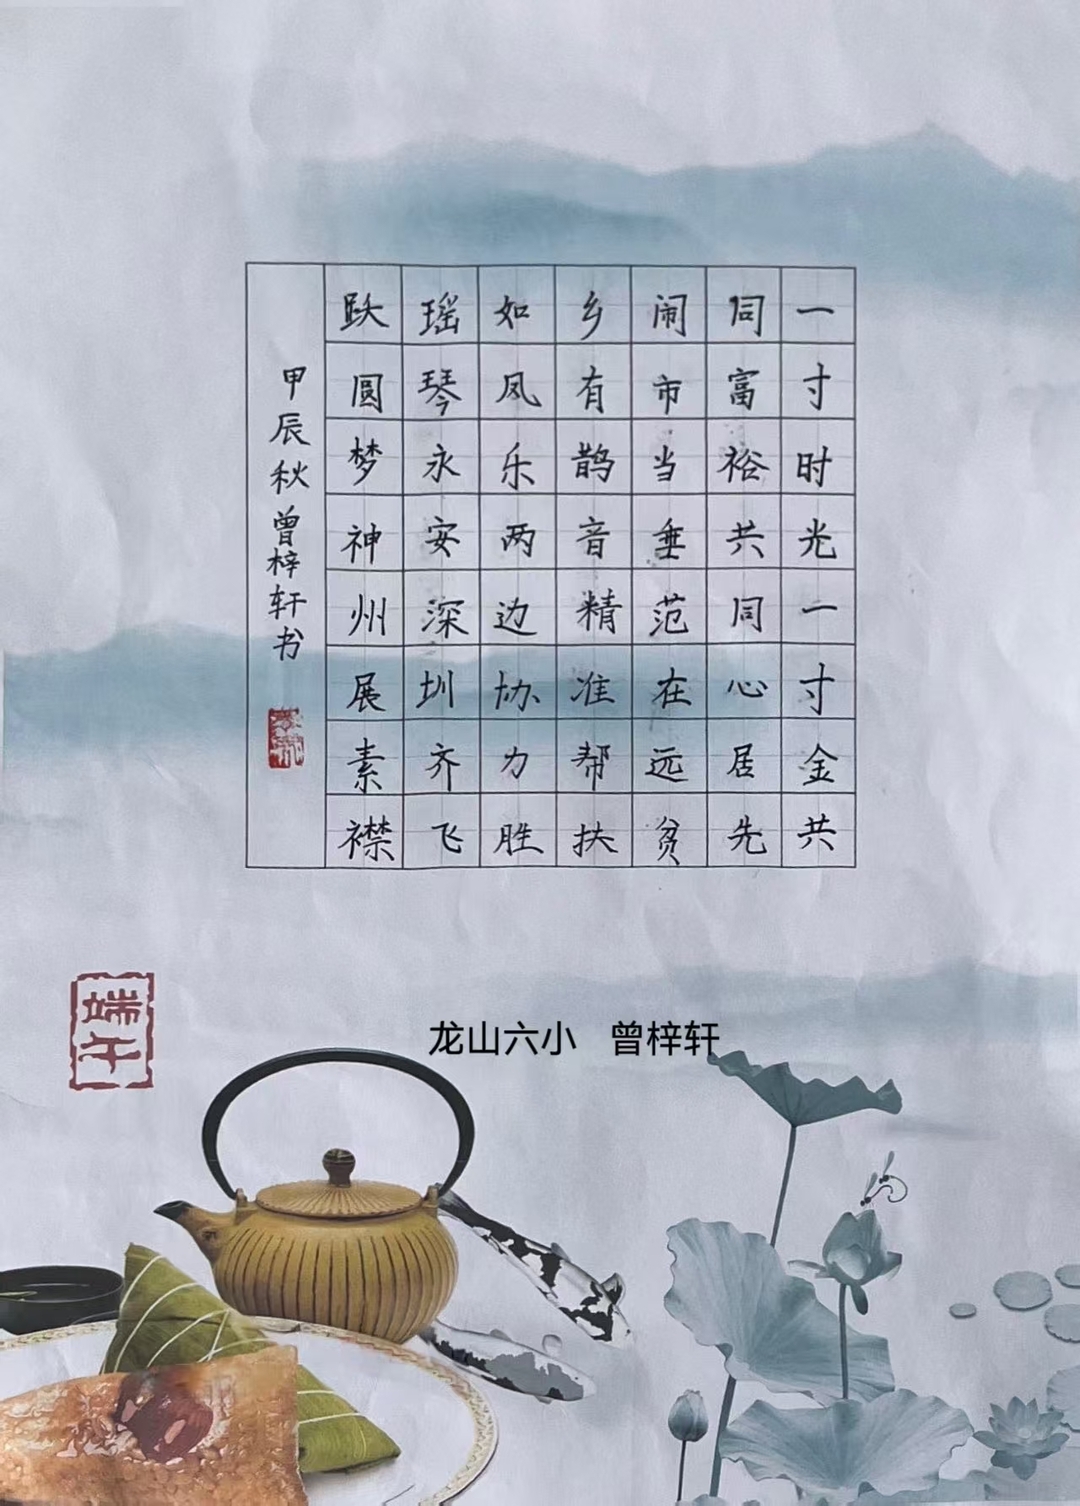 一寸时光一寸金共
同富裕共同心居先
闹市当垂范在远贫
乡有鹊音精准帮扶
如凤乐两边协力胜
瑶琴永安深圳齐飞
跃圆梦神州展素襟
甲辰秋曾梓轩书
端午
龙山六小 曾梓轩